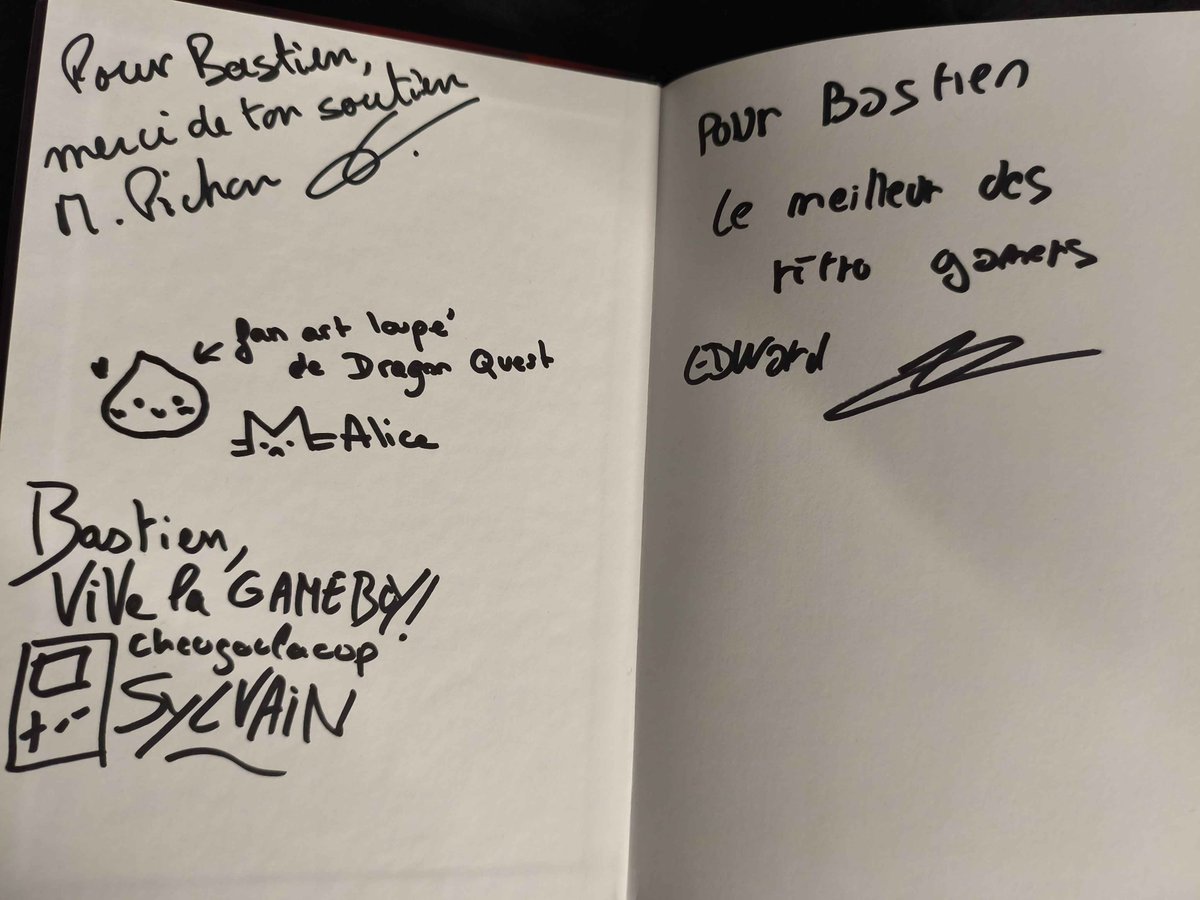 Pour Bastien,
merci de ton soutien
M. Pichon
fan art loupé
de Dragon Quest
Alice
Bastien,
ViVe la GAMEBOY!
SYLVAiN
Pour Bastien
le meilleur des
rétro gamers
EDWard